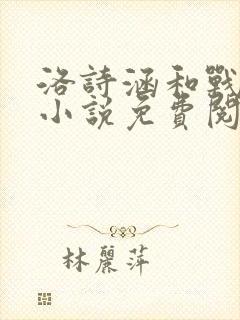 洛詩涵和戰
小說免費閱
林麗萍